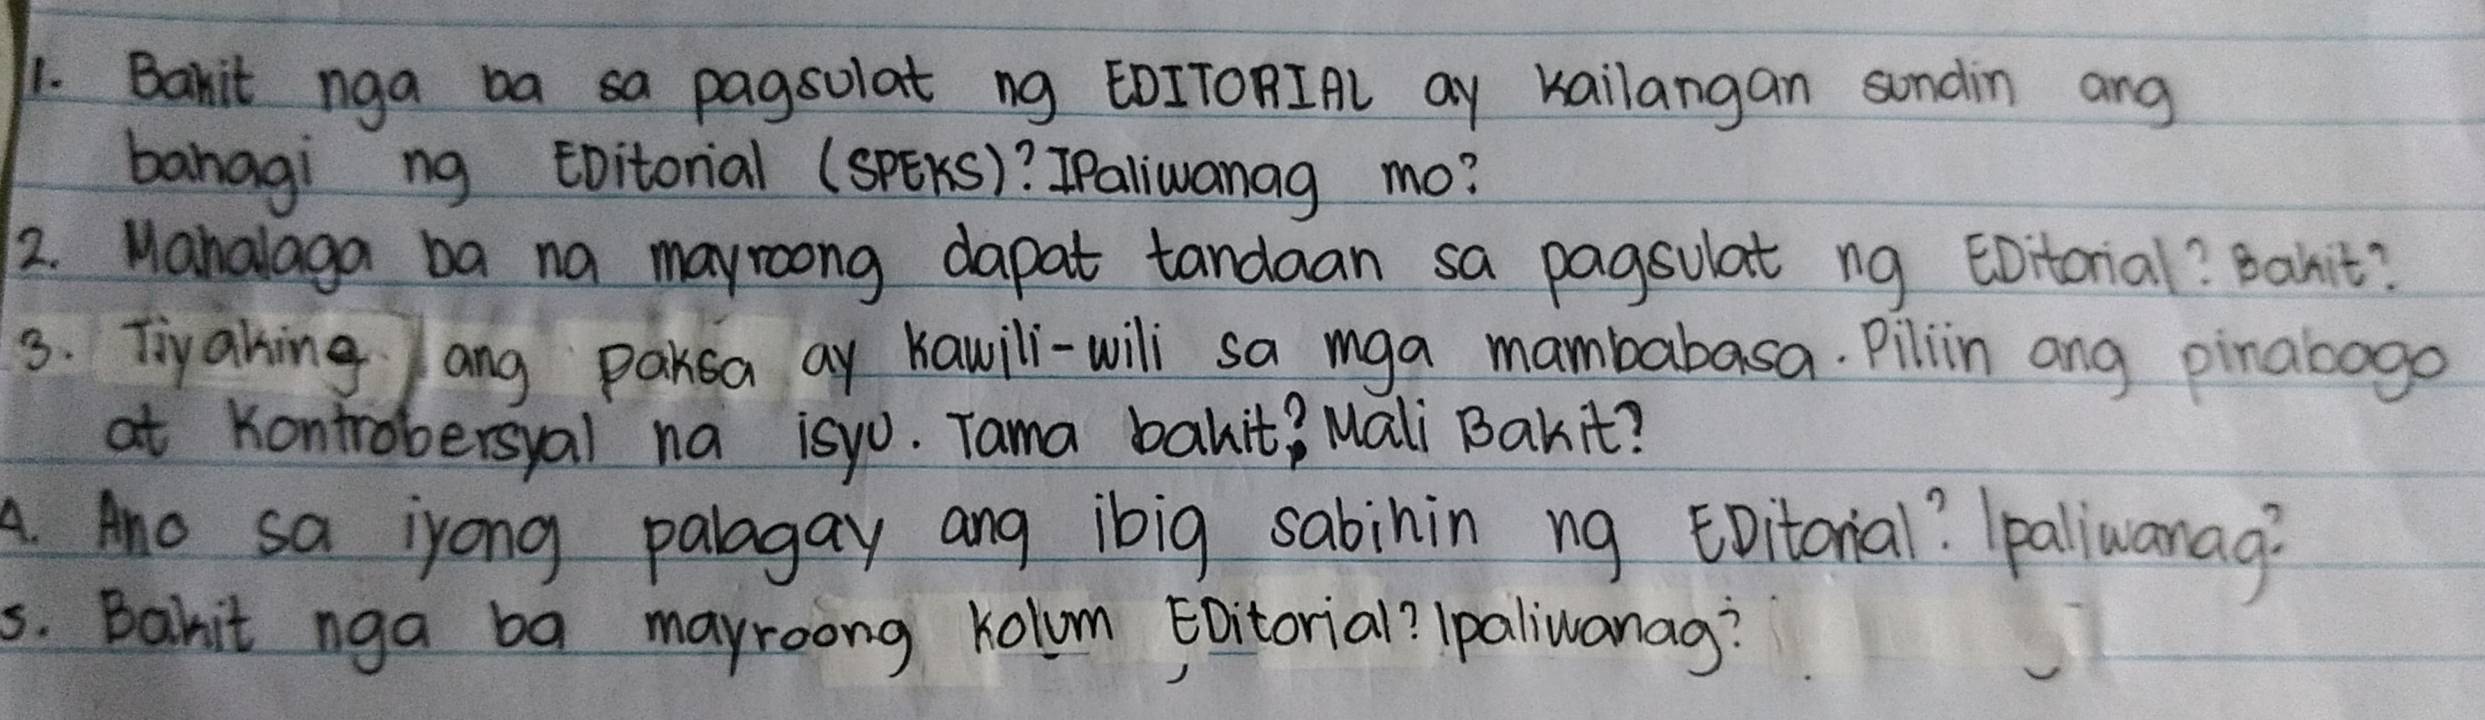 1. Bakit nga ba sa pagsulat ng EDITORIAL ay kailangan sundin ang
bahagi ng EDitorial (SPEKS)? IPaliwanag mo?
2. Mahalaga ba na mayroong dapat tandaan sa pagsulat ng EDitorial? Bakit?
3. Tiyaking ang paksa ay kawili-wili sa mga mambabasa. Piliin ang pinabago
at kontrobersyal na isyu. Tama bakit? Mali Bakit?
4. Ano sa iyong palagay ang ibig sabihin ng EDitorial? Ipaliwanag?
5. Bakit nga ba mayroong kolum EDitorial? Ipaliwanag?